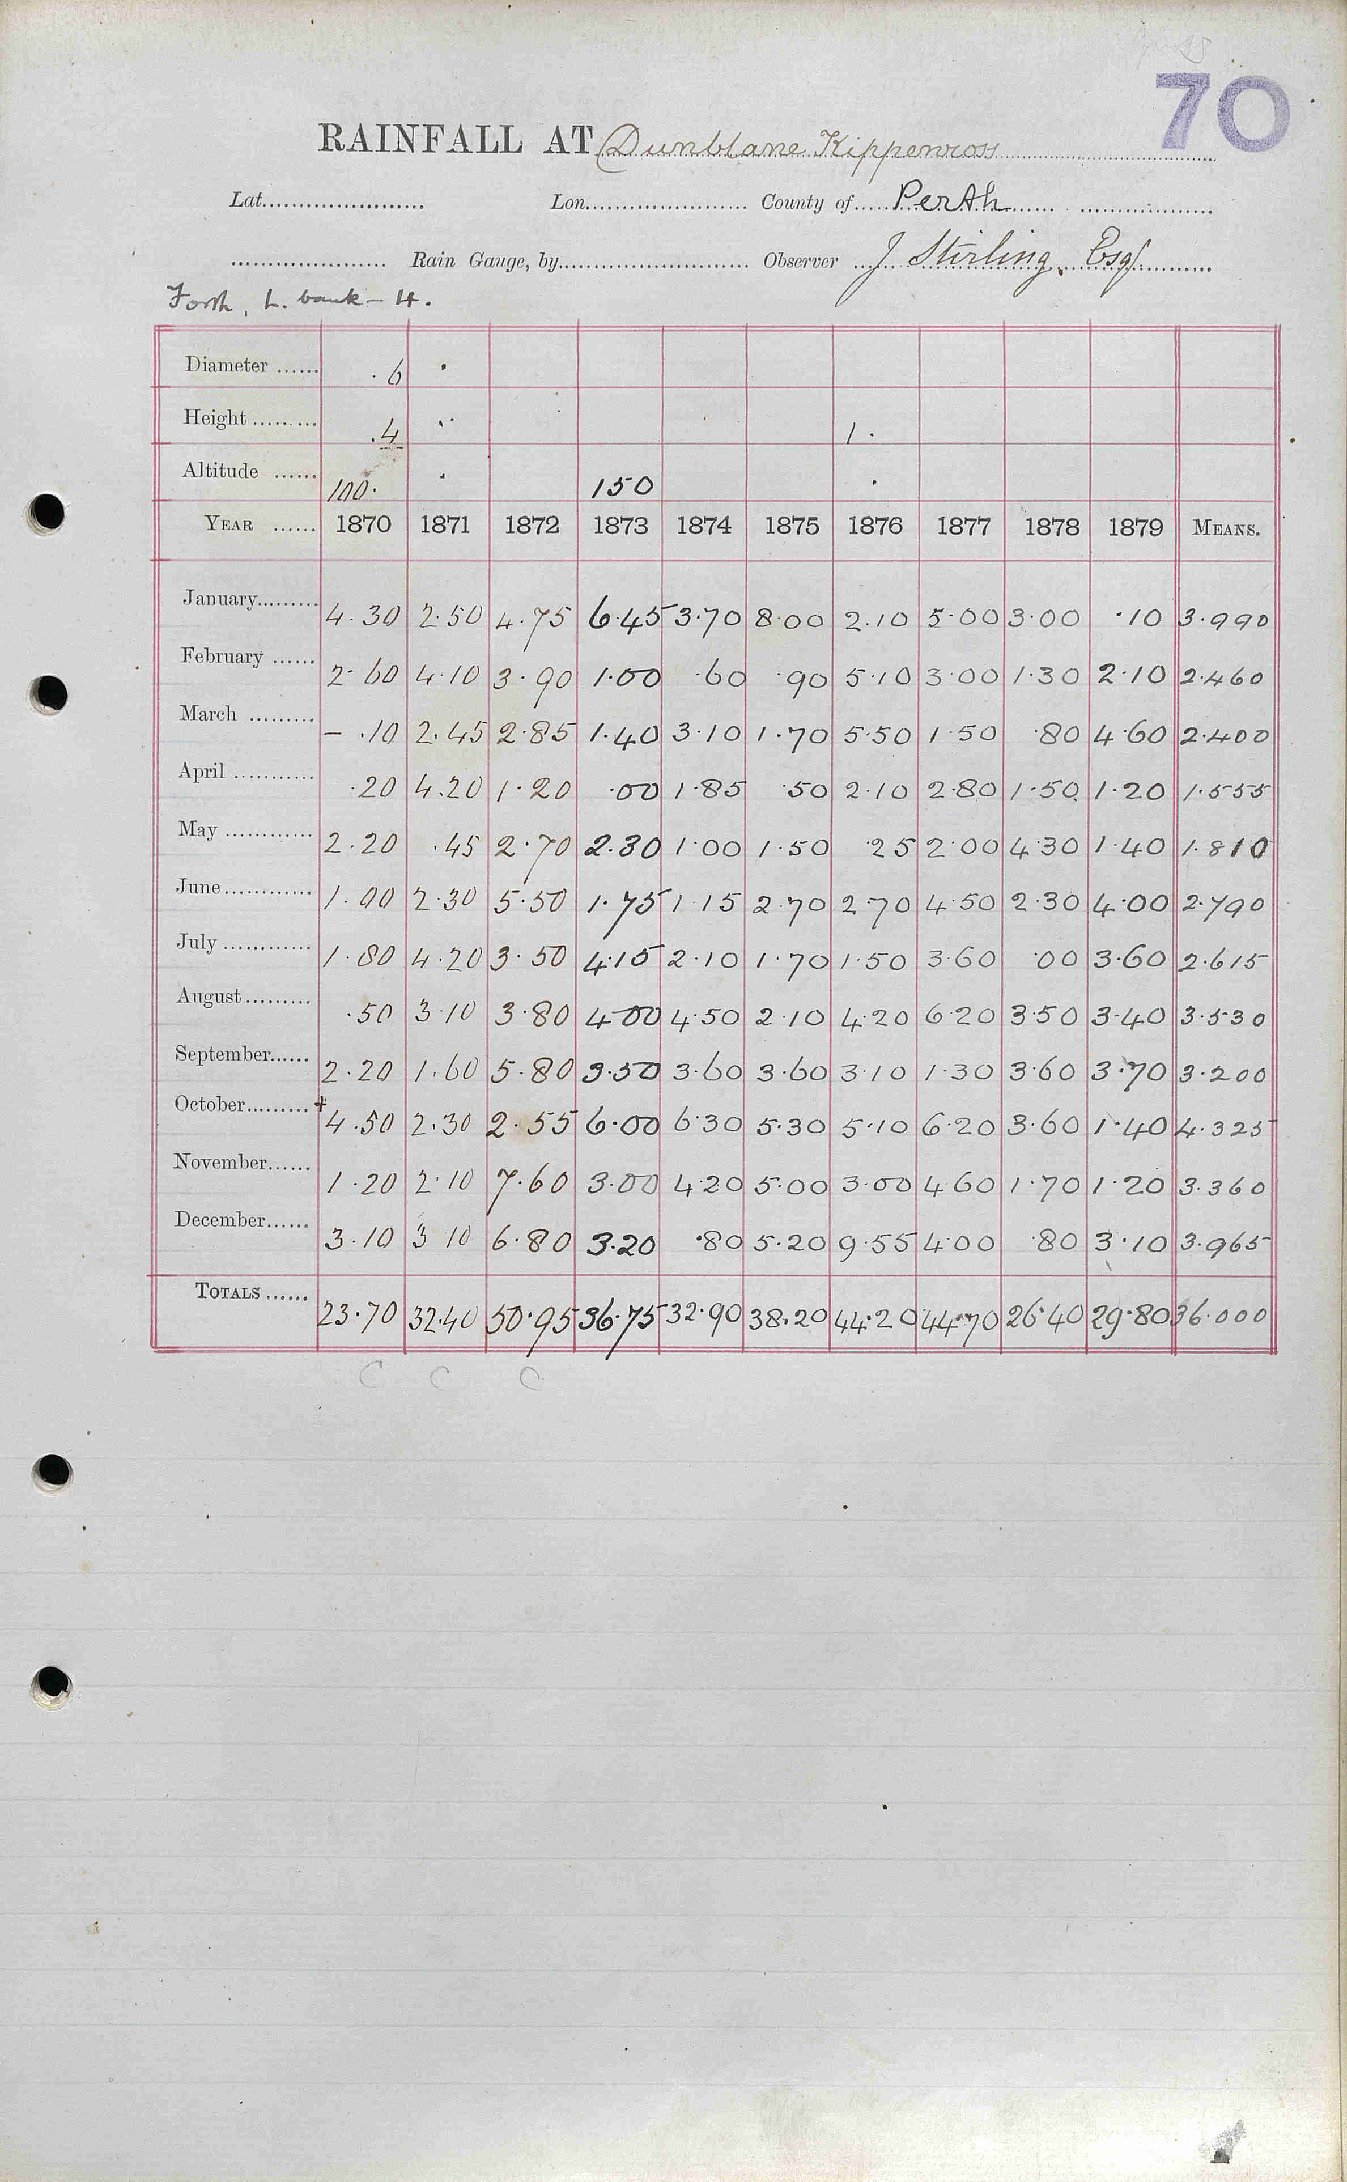 70
RAINFALL AT Dunblane Kippenross
Lat. Lon. County of Perth
Rain Gauge, by Observer J Stirling, Esq
Forth, L. bank - 4.
Diameter ...... .6 .
Height ......... .4 .. 1 .
Altitude ...... 100. . 150 .
YEAR ...... 1870 1871 1872 1873 1874 1875 1876 1877 1878 1879 MEANS.
January......... 4.30 2.50 4.75 6.45 3.70 8.00 2.10 5.00 3.00 .10 3.990
February ...... 2.60 4.10 3.90 1.00 .60 .90 5.10 3.00 1.30 2.10 2.460
March ......... - .10 2.45 2.85 1.40 3.10 1.70 5.50 1.50 .80 4.60 2.400
April ........... .20 4.20 1.20 .00 1.85 .50 2.10 2.80 1.50 1.20 1.555
May ............ 2.20 .45 2.70 2.30 1.00 1.50 .25 2.00 4.30 1.40 1.810
June............ 1.00 2.30 5.50 1.75 1.15 2.70 2.70 4.50 2.30 4.00 2.790
July ............ 1.80 4.20 3.50 4.15 2.10 1.70 1.50 3.60 .00 3.60 2.615
August......... .50 3.10 3.80 4.00 4.50 2.10 4.20 6.20 3.50 3.40 3.530
September...... 2.20 1.60 5.80 3.50 3.60 3.60 3.10 1.30 3.60 3.70 3.200
October......... + 4.50 2.30 2.55 6.00 6.30 5.30 5.10 6.20 3.60 1.40 4.325
November...... 1.20 2.10 7.60 3.00 4.20 5.00 3.00 4.60 1.70 1.20 3.360
December...... 3.10 3.10 6.80 3.20 .80 5.20 9.55 4.00 .80 3.10 3.965
TOTALS ...... 23.70 32.40 50.95 36.75 32.90 38.20 44.20 44.70 26.40 29.80 36.000
C C C